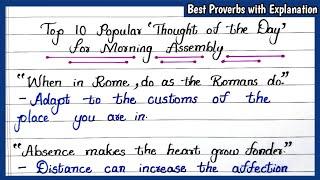 Best Proverbs with Explanation
Top 10 Popular 'Thought of the Day'
for Morning Assembly
"When in Rome, do as the Romans do."
- Adapt to the customs of the
place you are in.
"Absence makes the heart grow fonder"
- Distance can increase the affection